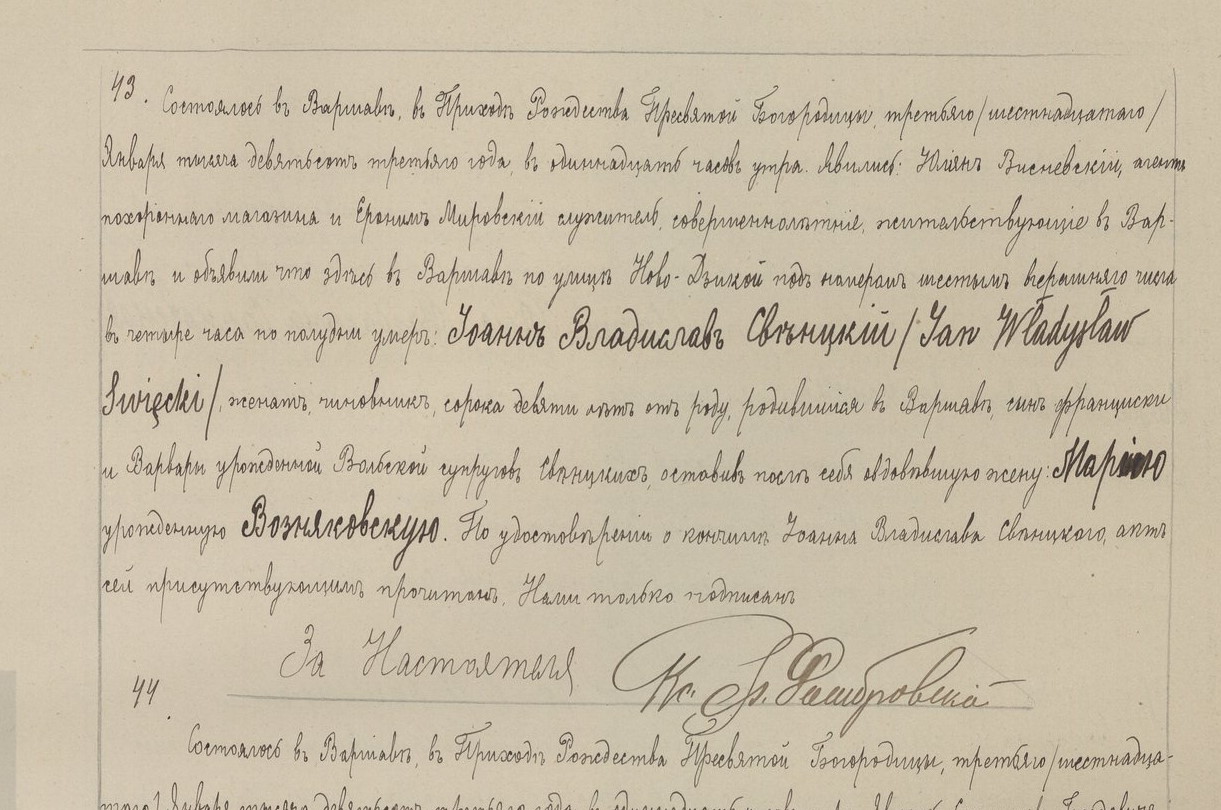 43.
Состоялось въ Варшавѣ, въ Приходѣ Рождества Пресвятой Богородицы, третьяго /шестнадцатаго/
Января тысяча девятьсотъ третьяго года, въ одиннадцать часовъ утра. Явились: Юліянъ Висневскій, агентъ
похороннаго магазина и Еронимъ Мировскій служитель, совершеннолѣтніе, жительствующіе въ Вар-
шавѣ и объявили что здѣсь въ Варшавѣ по улицѣ Ново-Дзикой подъ номеромъ шестымъ вчерашняго числа
въ четыре часа по полудни умеръ: Іоаннъ Владиславъ Свѣнцкій /Jan Władysław
Święcki/, женатъ, чиновникъ, сорока девяти лѣтъ отъ роду, родившійся въ Варшавѣ, сынъ Франциска
и Варвары урожденной Вольской супруговъ Свѣнцкихъ, оставивъ послѣ себя овдовѣвшую жену: Марію
урожденную Возняковскую. По удостовѣреніи о кончинѣ Іоанна Владислава Свѣнцкаго, актъ
сей присутствующимъ прочитанъ, Нами только подписанъ
За Настоятеля Кс.
44.
Состоялось въ Варшавѣ, въ Приходѣ Рождества Пресвятой Богородицы, третьяго /шестнадца-
таго/ Января тысяча девятьсотъ третьяго года, въ одиннадцать